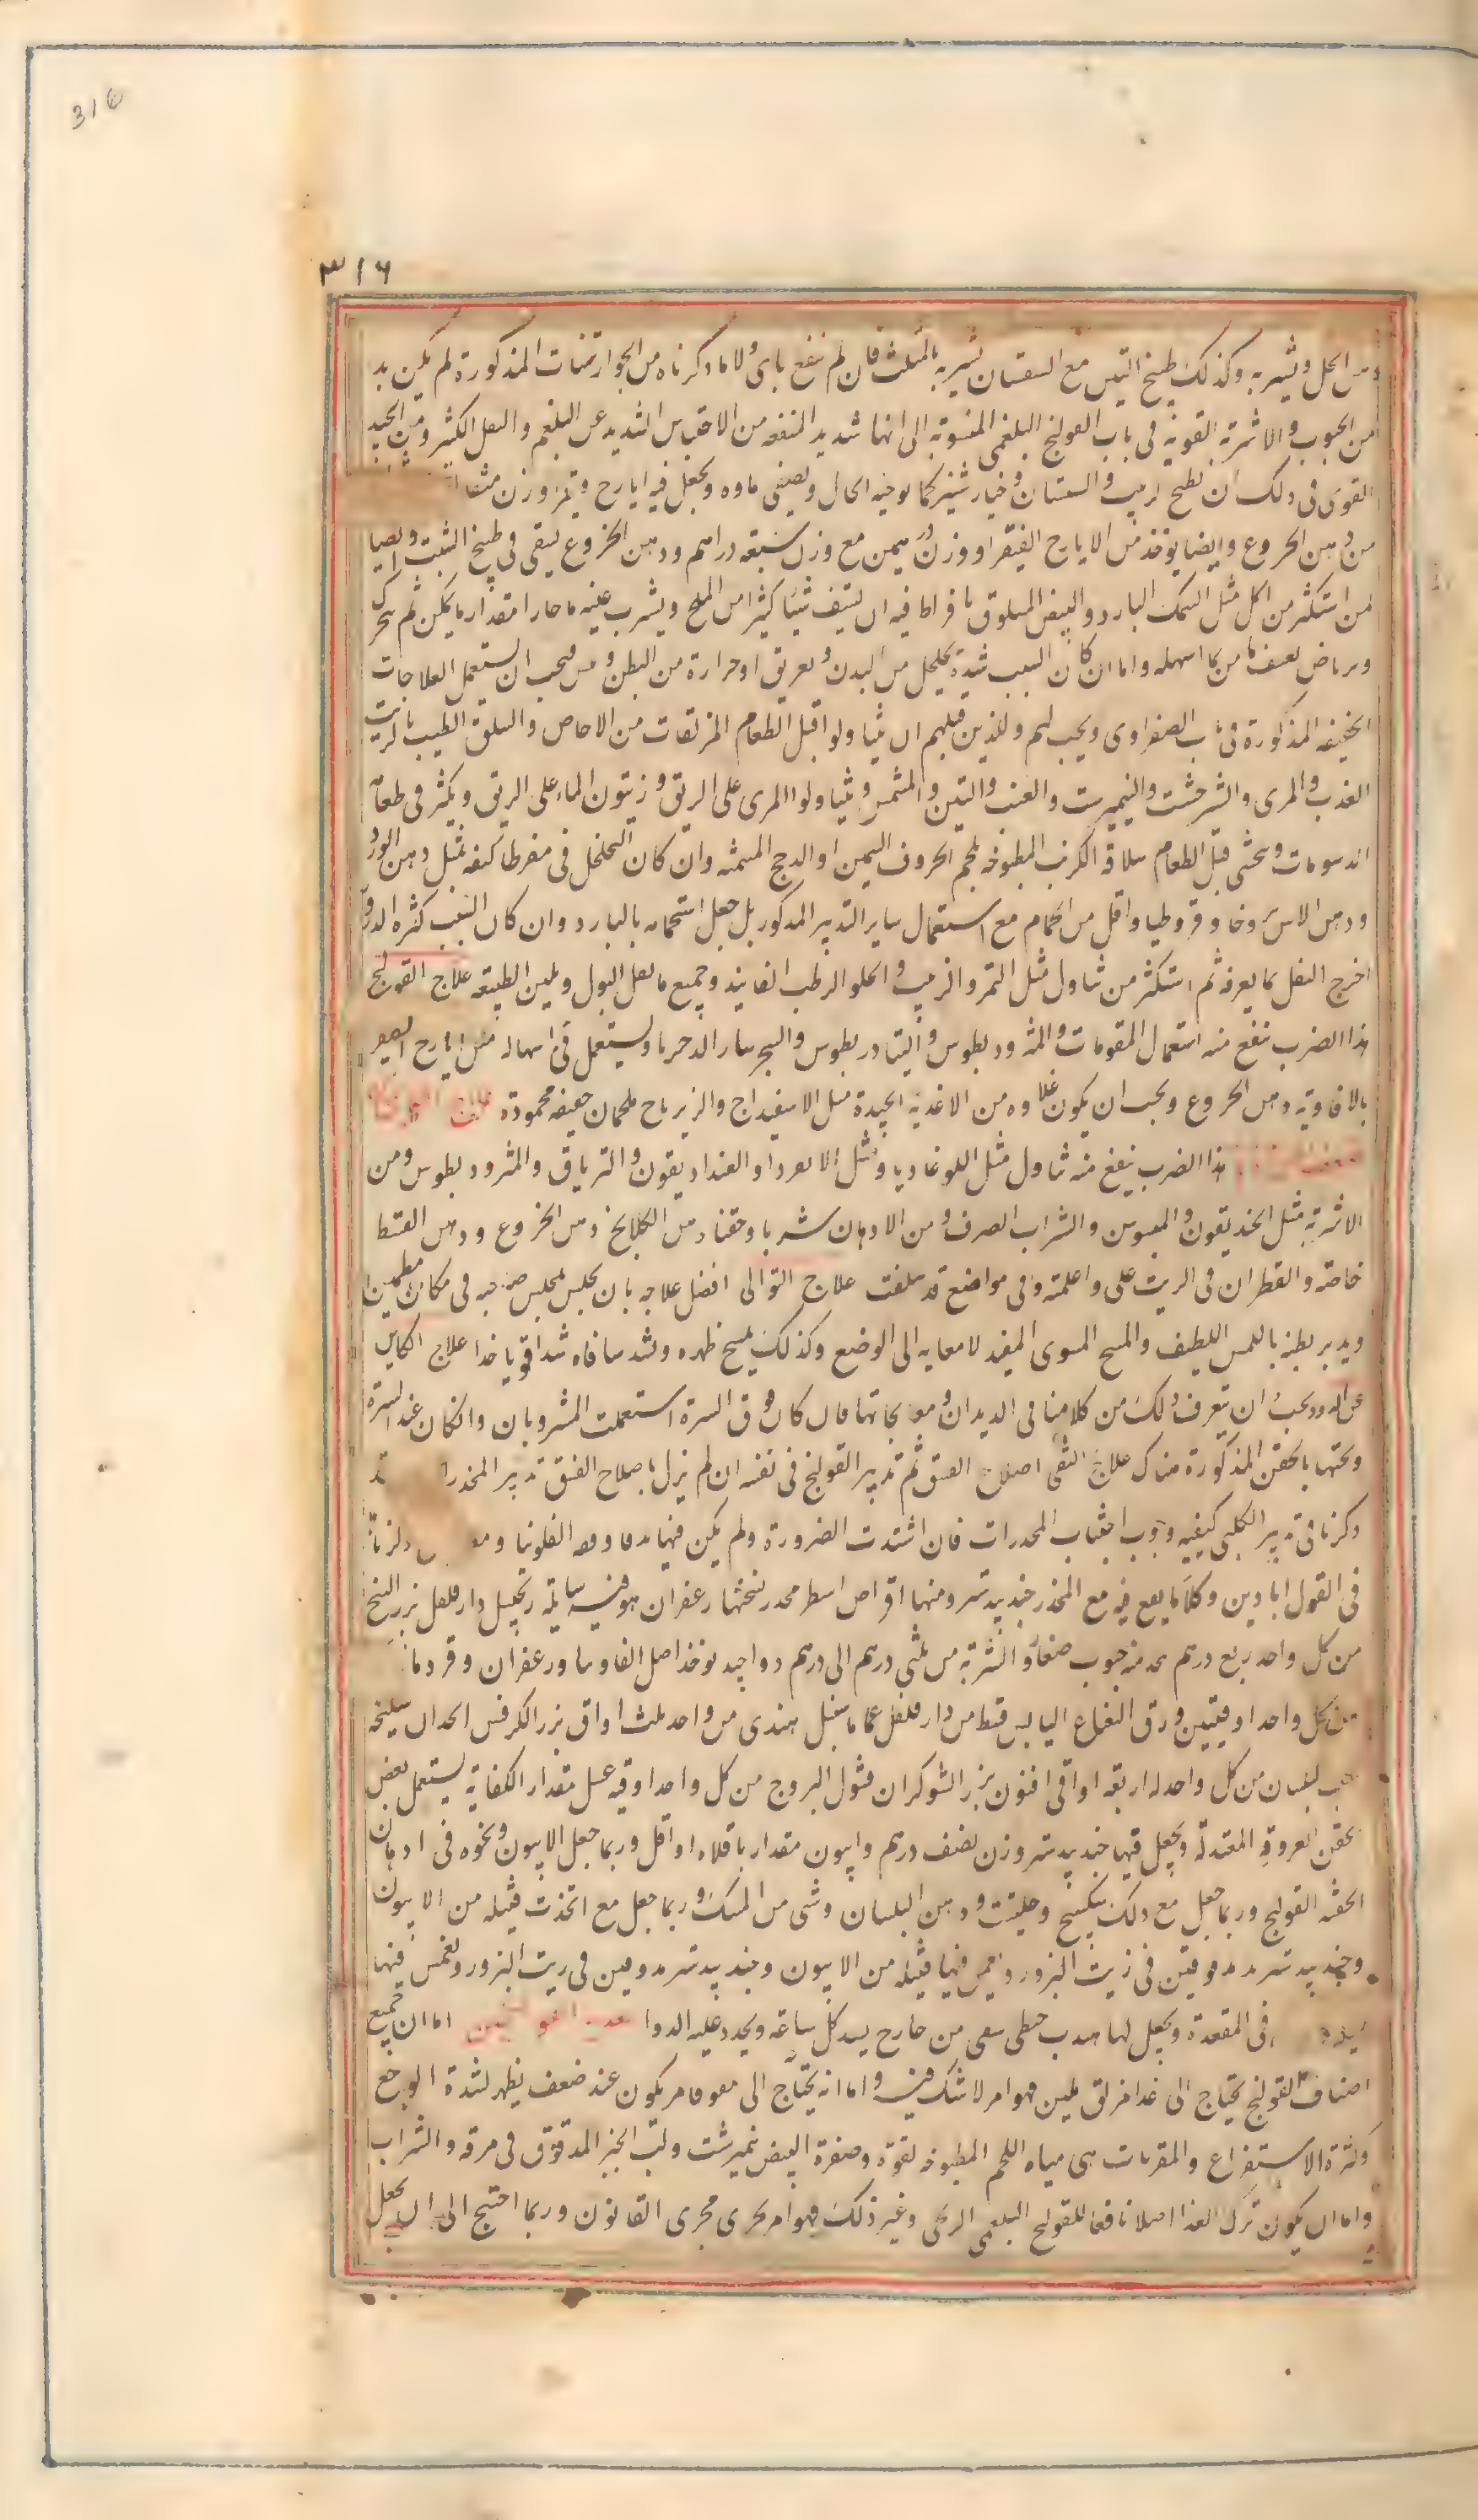 316
٣١٦
الحل ويشربه وكذلك طبيخ التين مع السبستان يشربه بالمثلث فان لم ينفع باى ولا ما ذكرناه من الجوارشنات المذكورة لم يكن بد
من الحبوب والاشربة القوية فى باب القولنج البلغمى المنسوبة الى انها شديد المنفعه من الاحتباس الشديد عن البلغم والثفل الكثير ومن الجيد
القوى فى ذلك ان يطبخ الزبيب والسبستان وخيار شنبر كما يوجبه الحال ويصفى ماوه ويجعل فيه ايارج
من دهن الخروع وايضا يوخذ من الايارج الفيقرا ووزن درهمين مع وزن سبعه دراهم ودهن الخروع يسقى فى طبيخ الشبت وايضا
لمن استكثر من اكل مثل السمك البارد والبيض المسلوق بافراط فيه ان يستف شيئا كثيرا من الملح ويشرب عليه ماء حارا مقدار ما يمكن ثم يتحرك
ويرتاض بعنف ما من كما اسهله واما ان كان السبب شدة تحلل من البدن وتعريق او حرارة من البطن ويبس فيجب ان يستعمل العلاجات
الخفيفه المذكورة فى باب الصفراوى ويجب لهم وللذين قبلهم ان يتناولوا قبل الطعام المزلقات من الاجاص والسلق المطيب بالزيت
العذب والمرى والشيرخشت والنيمبرشت والعنب والتين والمشمش ويتناولوا المرى على الريق وزيتون الماء على الريق ويكثر فى طعامه
الدسومات ويحتسى قبل الطعام سلاقة الكرنب المطبوخه بلحم الخروف السمين او الدجج المسمنه وان كان التخلخل فى مفرطا كثفه بمثل دهن الورد
ودهن الاس مروخا وقروطيا واقل من الحمام مع استعمال ساير التدبير المذكور بل جعل استحمامه بالبارد وان كان السبب كثره الدرور
اخرج الثفل بما يعرفه ثم استكثر من تناول مثل التمر والزبيب والحلو الرطب الفانيذ وجميع ما يقل البول ويلين الطبيعه علاج القولنج
هذا الضرب ينفع منه استعمال المقويات والمثروديطوس والتيادريطوس والسجرينا والدحمرثا ويستعمل فى اسهاله مثل ايارج
بالافاويه ودهن الخروع ويجب ان يكون غذاوه من الاغذيه الجيدة مثل الاسفيداج والزيرباج بلحمان خفيفه محمودة علاج
هذا الضرب ينفع منه تناول مثل اللوغاديا ومثل والترياق والمثروديطوس ومن
الاشربه مثل الخنديقون والميسوس والشراب الصرف ومن الادهان شربا وحقنا دهن الكلكلانج ودهن الخروع ودهن القسط
خاصه والقطران فى الزيت على ما علمته وفى مواضع قد سلفت علاج التوالى افضل علاجه بان يجلس صاحبه فى مكان مطمئن
ويدبر بطنه باللمس اللطيف والمسح المسوى المعيد لامعايه الى الوضع وكذلك يمسح ظهره ويشد ساقاه شدا قويا جدا علاج الكاين
عن الدود يجب ان يتعرف ذلك من كلامنا فى الديدان ومعالجاتها فان كان فوق السرة استعملت المشروبات وان كان عند السرة
وتحتها بالحقن المذكورة هناك علاج الفتقى اصلاح الفتق ثم تدبير القولنج فى نفسه ان لم يزل باصلاح الفتق تدبير المخدرات قد
ذكرنا فى تدبير الكلى كيفيه وجوب اجتناب المخدرات فان اشتدت الضرورة ولم يكن فاوفقه الفلونيا
فى القراباذين وكلما يقع فيه مع المخدر جندبيدستر ومنها اقراص اسطر محدر نسختها زعفران ميعه سايله زنجبيل دارفلفل بزر البنج
من كل واحد ربع درهم يتخذ منه حبوب صغار والشربه من ثلثى درهم الى درهم دوا جيد يوخذ اصل الفاوينا وزعفران وقردمانا
من كل واحد اوقيتين ورق النعناع اليابس قسط مر دارفلفل حماما سنبل هندى من واحد ثلث اواق بزر الكرفس انجدان سليخه
حب بلسان من كل واحد اربعه اواقى افيون بزر الشوكران قشور اليبروج من كل واحد اوقيه عسل مقدار الكفايه يستعمل بعض
الحقن المعروفة المعتدلة ويجعل فيها جندبيدستر وزن نصف درهم وابيون مقدار باقلاه او اقل وربما جعل الابيون ونحوه فى ادهان
الحقنه القولنج وربما جعل مع ذلك سكبينج وحلتيت ودهن البلسان وشى من المسك وربما جعل مع اتخذت فتيله من الابيون
وجندبيدستر مدقوقين فى زيت البزور وتغمس فيها فتيله من الابيون وجندبيدستر مدوفين فى زيت البزور وتغمس فيها
فى المقعدة ويجعل لها هدب خيطى يبقى من خارج كل ساعه ويجدد عليه الدوا اما ان جميع
اصناف القولنج يحتاج الى غذا مزلق ملين فهو امر لاشك فيه واما انه يحتاج الى مقو فامر يكون عند ضعف يظهر لشدة الوجع
وكثرة الاستفراغ والمقويات هى مياه اللحم المطبوخه بقوة وصفرة البيض نيمبرشت ولب الخبز المدقوق فى مرقه والشراب
واما ان يكون ترك الغذا اصلا نافعا للقولنج البلغمى الريحى وغير ذلك فهو امر يجرى مجرى القانون وربما احتيج الى ان يجعل